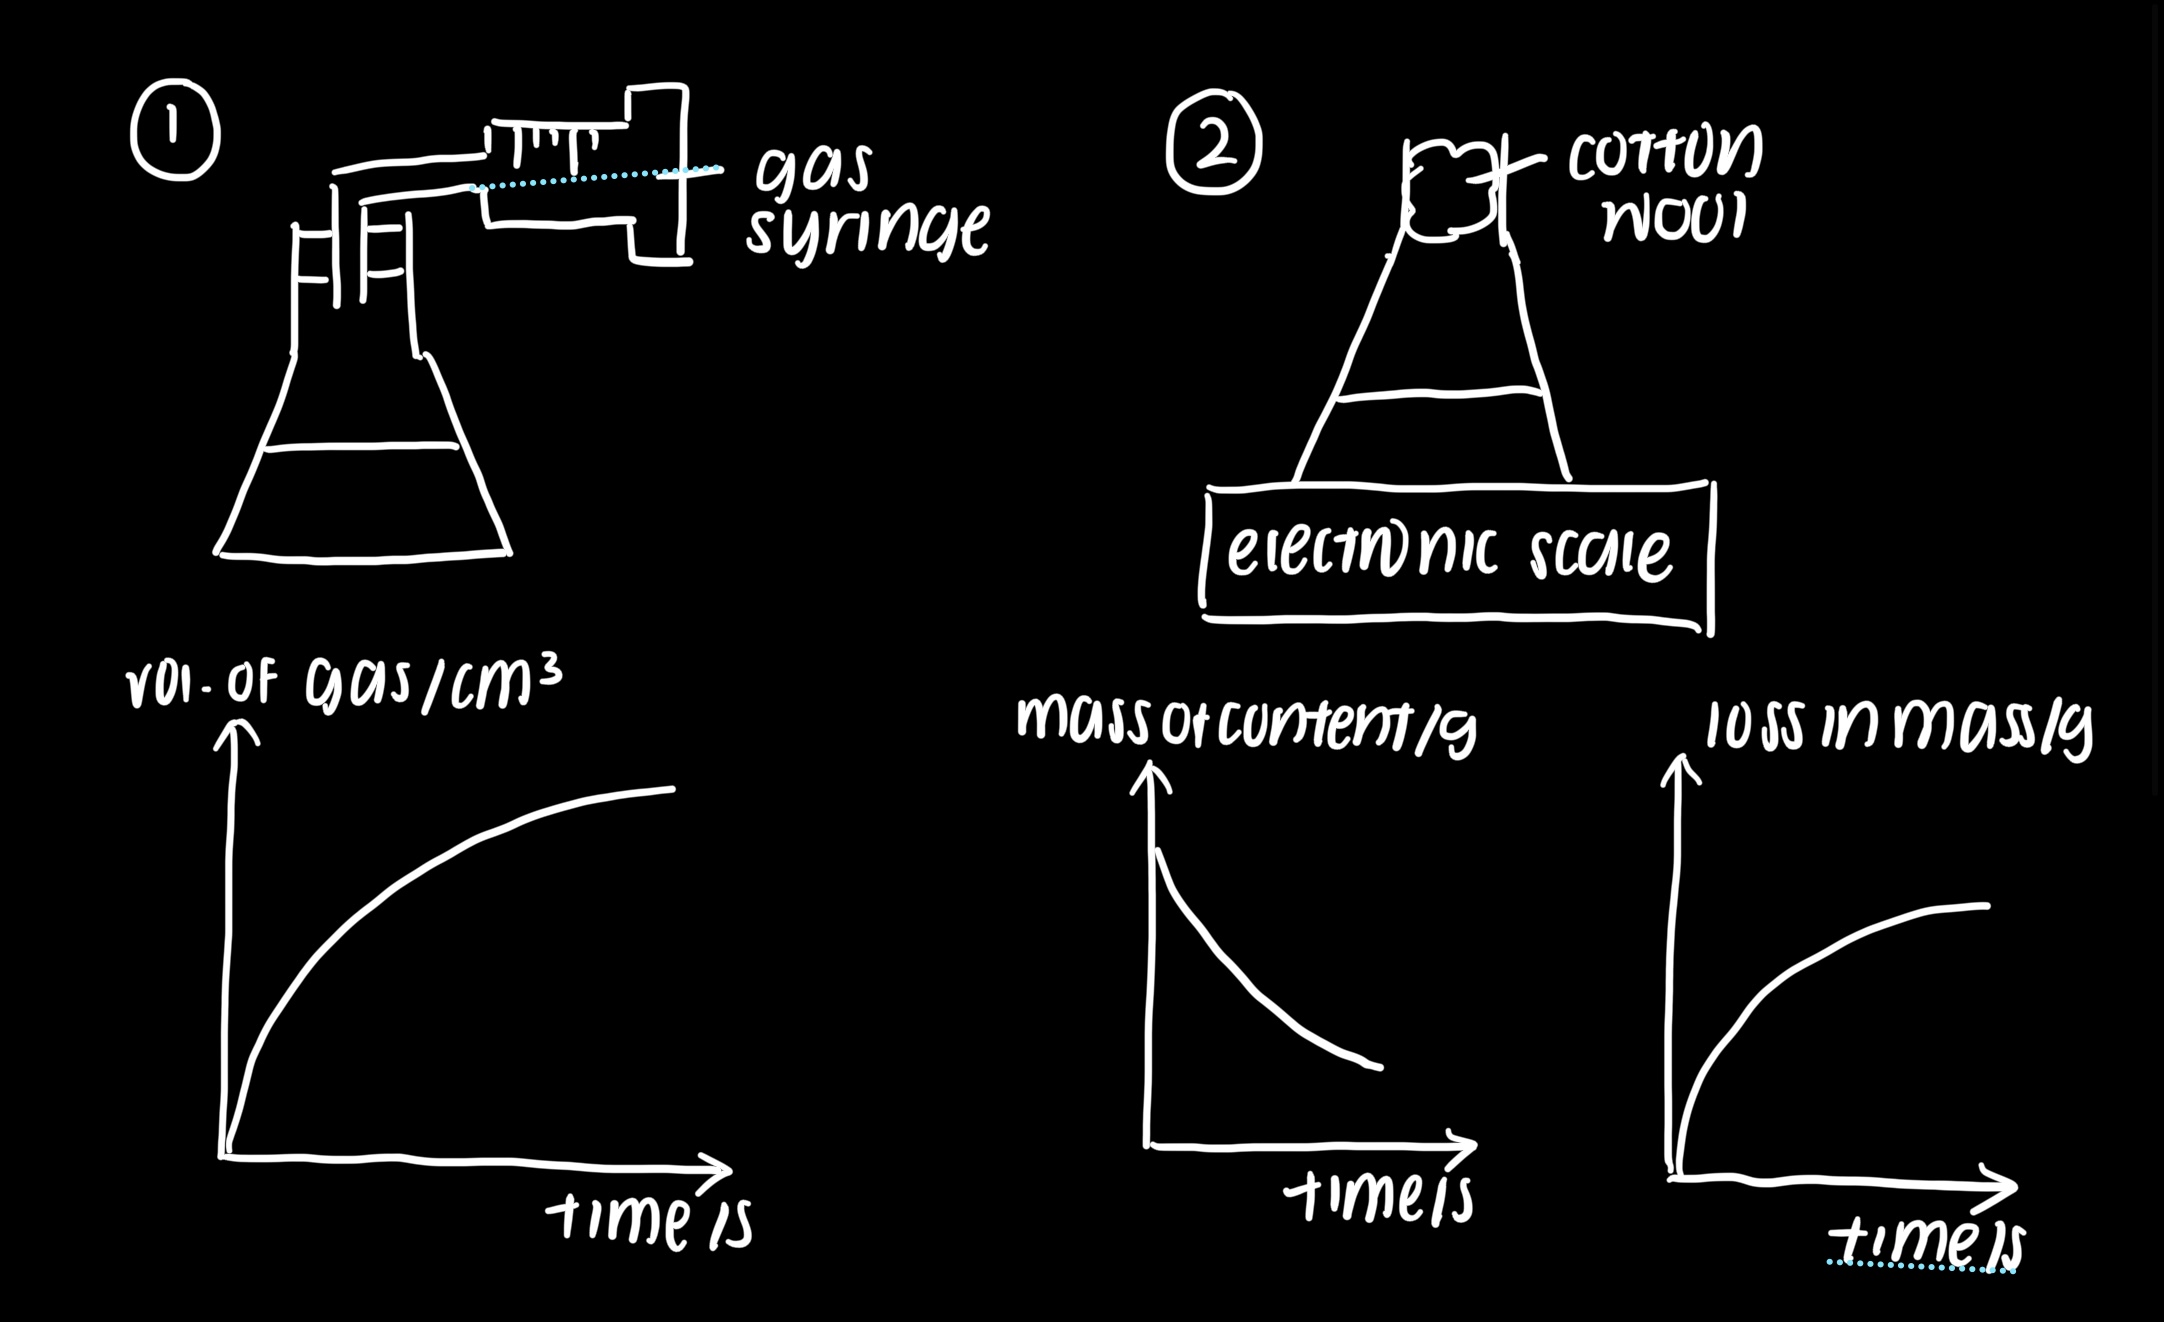 1
gas
syringe
2
cotton
wool
electronic scale
vol. of gas/cm³
time/s
mass of content/g
time/s
loss in mass/g
time/s